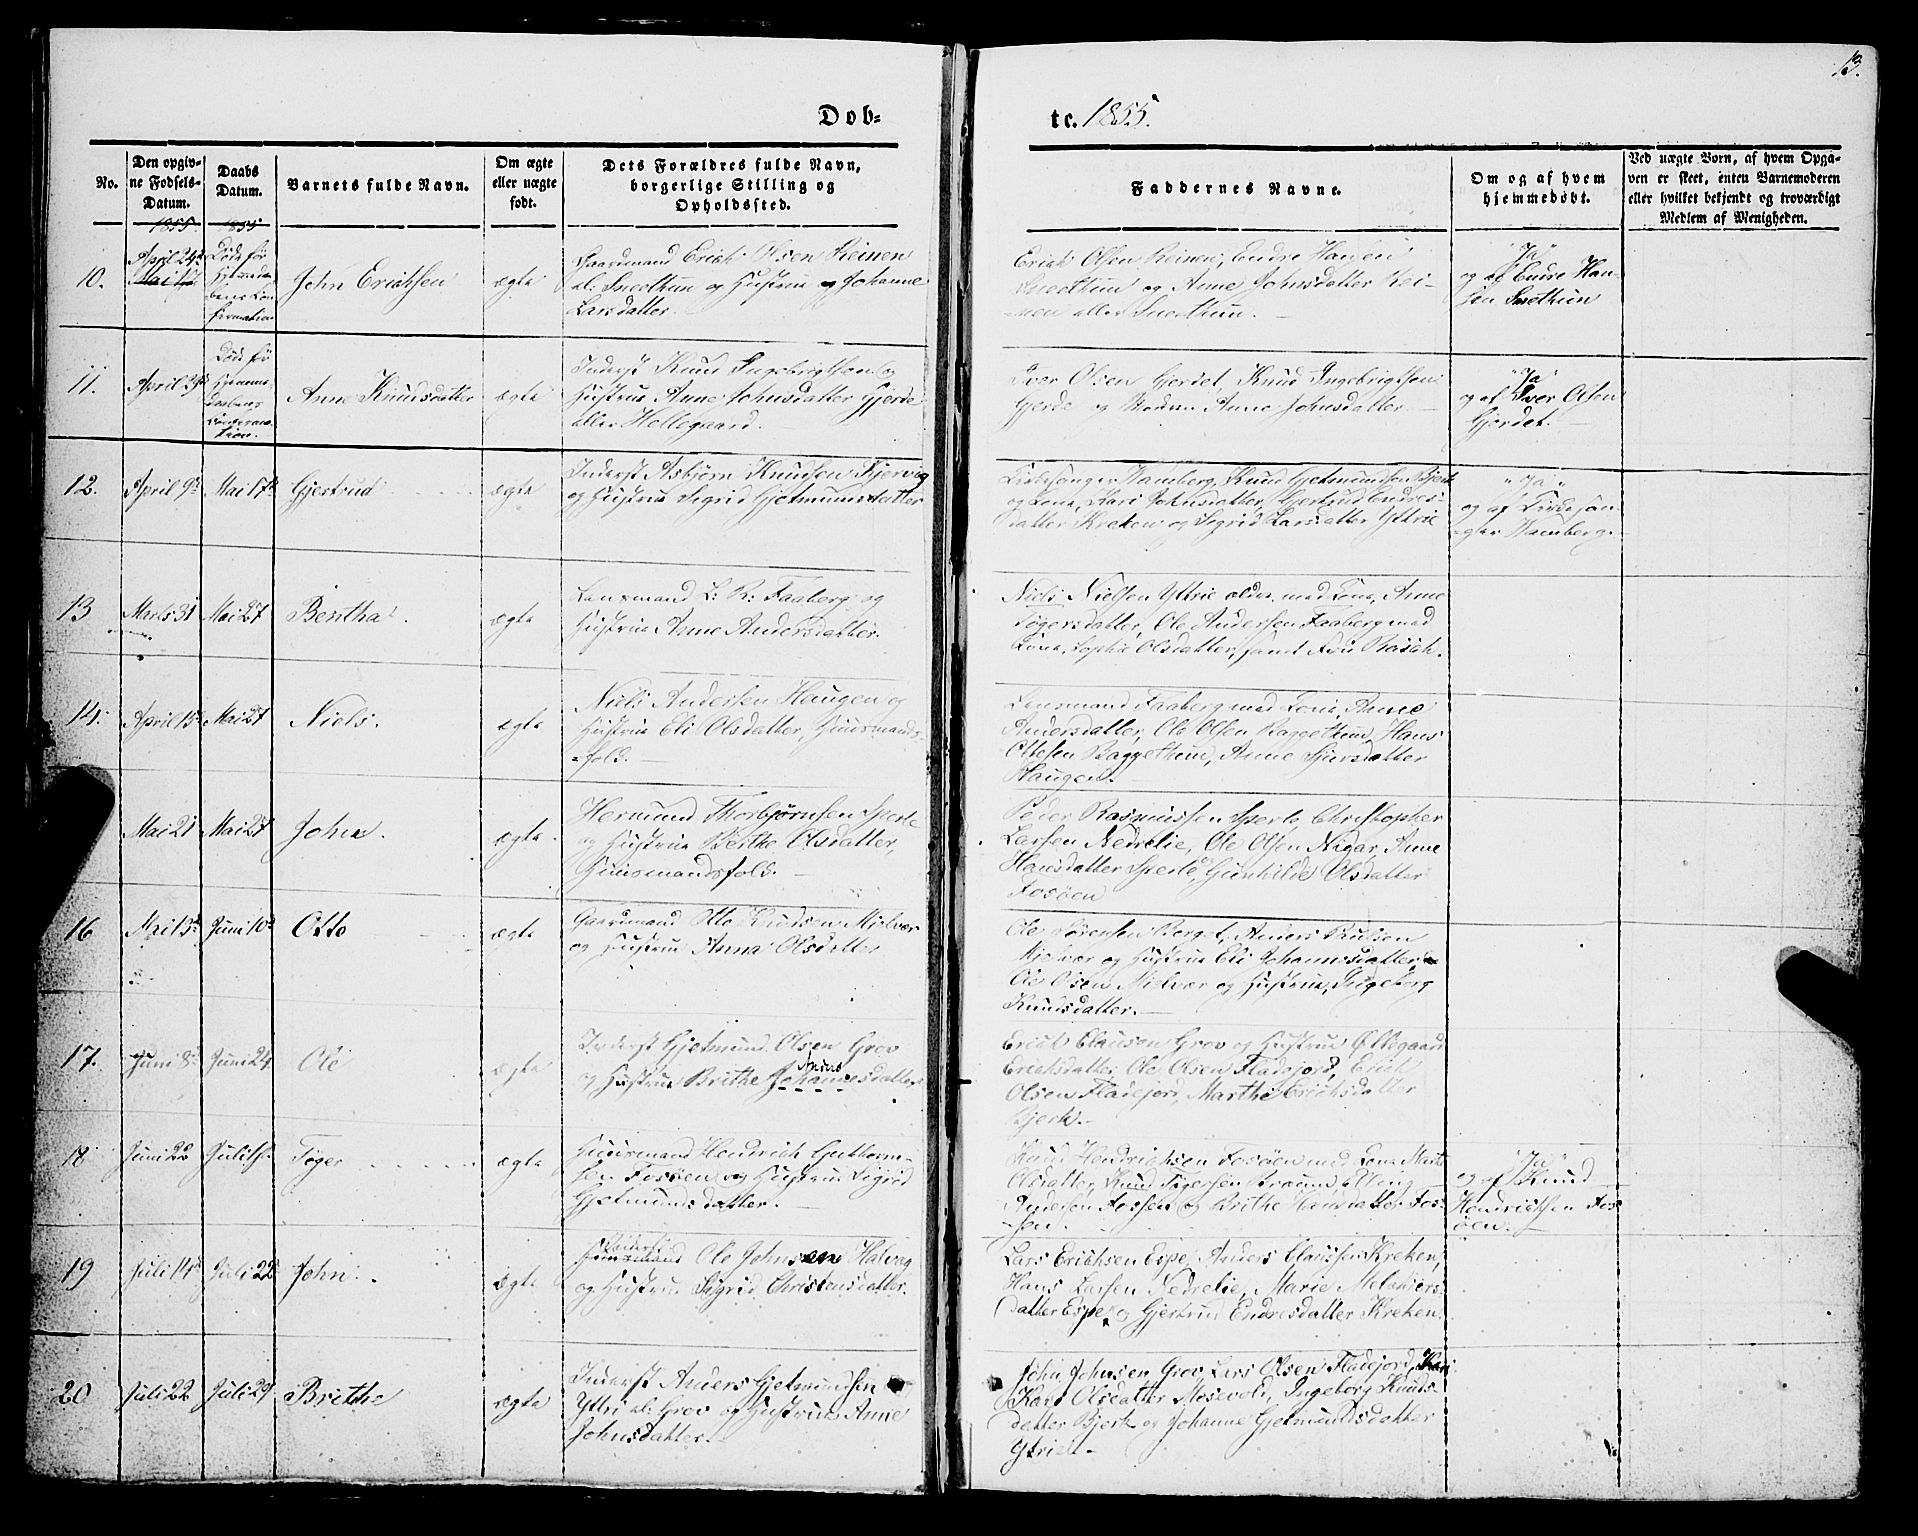 13.
Døb=
te. 1855.
No.
Den opgiv-
ne Fødsels-
Datum.
Daabs
Datum.
Barnets fulde Navn.
Om ægte
eller uægte
født.
Dets Forældres fulde Navn,
borgerlige Stilling og
Opholdssted.
Faddernes Navne.
Om og af hvem
hjemmedøbt.
Ved uægte Børn, af hvem Opga-
ven er skeet, enten Barnemoderen
eller hvilket bekjendt og troværdigt
Medlem af Menigheden.
1855
1855
10.
April 24de
Mai
Døde før
Hjemmedaa-
bens Con-
firmation
John Erichsen
ægte
Gaardmand Erich Olsen Reinen
al: Snethun og Hustrue Johanne
Larsdatter.
Erich Olsen Reinen, Endre Hansen
Snethun og Anne Johnsdatter Rei-
nen eller Snethun.
"Ja"
og af Endre Han-
sen Snethun
11.
April
Døde før
Hjemme-
daabens
Confirma-
tion.
Anne Knudsdatter
ægte
Inderst Knud Ingebrigtsen og
Hustrue Anne Johnsdatter Gjerde
eller Hellegaard.
Iver Olsen Gjerdet, Knud Ingebrigtsen
Gjerde og Anne Johnsdatter.
"Ja"
og af Iver Olsen
Gjerdet.
12.
April 9de
Mai 17de
Gjertrud
ægte
Inderst Asbjørn Knudsen Kjervig
og Hustrue Sigrid Gjetmundsdatter
Kirkesanger Wamberg, Knud Gjetmundsen Bjerk
og Kone, Kari Johnsdatter, Gjertrud Endres-
datter Kreken og Sigrid Larsdatter Yttrie
"Ja"
og af Kirkesan-
ger Wamberg.
13
Marts 31
Mai 27
Bertha.
ægte
Lensmand L: R: Faaberg og
Hustrue Anne Andersdatter.
Niels Nielsen Yttrie ældre med Kone, Anne
Tøgersdatter, Ole Andersen Faaberg med
Kone, Sophie Olsdatter, samt Frue
14.
April 15de
Mai 27
Niels.
ægte
Niels Andersen Haugen og
Hustrue Eli Olsdatter, Huusmands-
=fold.
Lensmand Faaberg med Kone, Anne
Andersdatter, Ole Olsen Baggethun, Hans
Ottesen Baggethun, Anne Sjursdatter
Haugen.
Mai 21
Mai 27
John.
ægte
Hermund Thorbjørnsen Sperle
og Hustrue Berthe Olsdatter,
Huusmandsfolk.
Peder Rasmussen Sperle, Christopher
Larsen Nedrelie, Ole Olsen Nigar, Anne
Hansdatter Sperle, Gunhilde Olsdatter
Fosøen
16
Mai 13de
Juni 10de
Otto
ægte
Gaardmand Otto Knudsen Mielvær
og Hustrue Anna Olsdatter
Ole Sørensen Berget, Anders
Mielvær og Hustrue Eli Johannesdatter,
Ole Olsen Mielvær og Hustrue, Ingeborg
Knudsdatter.
17.
Juni 8de
Juni 24.
Ole
ægte
Inderst Gjetmund Olsen Grov
og Hustrue Brithe Johannesdatter
Erich Clausen Grov og Hustrue Øllegaard
Erichsdatter, Ole Olsen Fladejord, Erich
Olsen Fladejord, Marthe Erichsdatter
Bjerk.
18
Juni 22
Tøger
ægte
Huusmand Hendrich Guthorm-
sen Fosøen og Hustrue Sigrid
Gjetmundsdatter.
Knud Hendrichsen Fosøen med Kone Marte
Olsdatter, Knud Tøgersen
Andersen Fossen og Brithe Hansdatter Fos-
sen.
"Ja"
og af Knud
Hendrichsen Fos-
øen.
19
Juli 14de
Juli 22
John.
ægte
Inderst
Huusmand Ole Johnsen Halvog
og Hustrue Sigrid Christensdatter.
Lars Erichsen Espe, Anders Claussen Kreken,
Hans Larsen Nedrelie, Marie
datter Espe og Gjertrud Endresdatter Kreken.
20
Juli 22
Juli 29
Brithe
ægte
Inderst Anders Gjetmundsen
Yttri al: Grov og Hustrue Anne
Johnsdatter.
John Johnsen Grov, Lars Olsen Fladejord,
Kari Olsdatter Mosevold, Ingeborg Knuds-
datter Bjerk og Johanne Gjetmundsdatter
Ytrie.